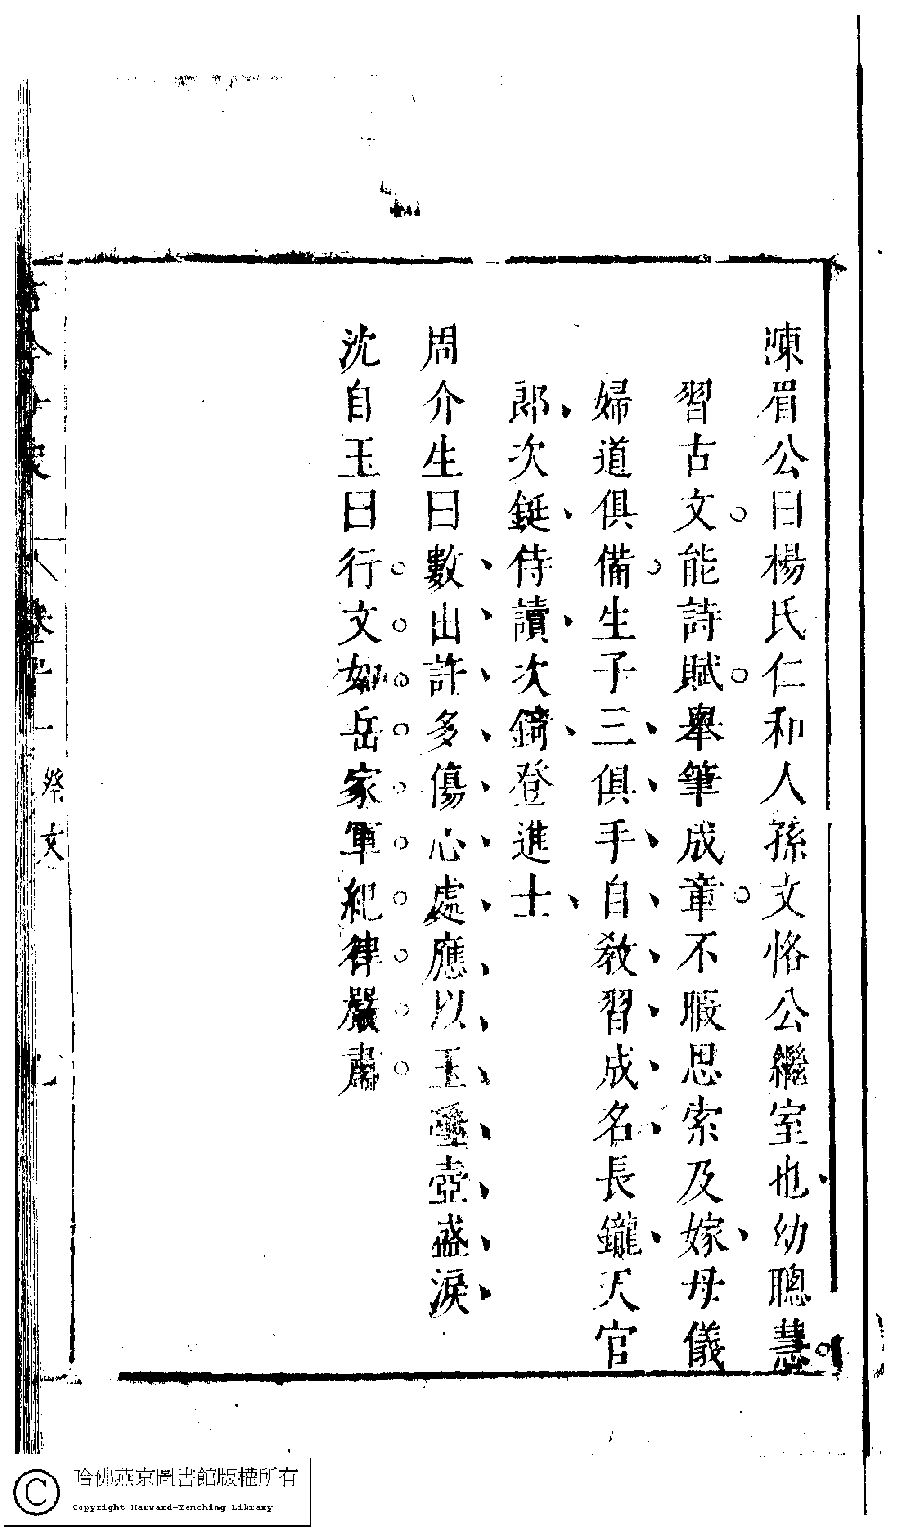 陳眉公曰楊氏仁和人孫文恪公繼室也幼聰慧
習古文能詩賦舉筆成章不暇思索及嫁母儀
婦道俱備生子三俱手自教習成名長鑨天官
郎次鋌侍讀次錡登進士
周介生曰數山許多傷心處應以玉壘壺盛淚
沈自玉曰行文如岳家軍紀律嚴肅
祭文
哈佛燕京圖書館版權所有
Copyright Harvard-Yenching Library